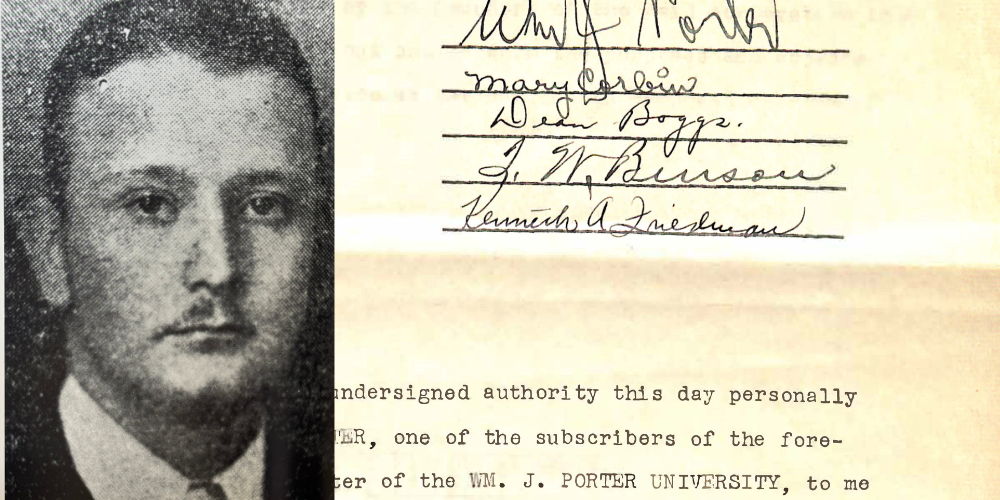 Wm J. Porter
Mary Corbin
Dean Boggs.
W. Binson
Kenneth A Friedman
undersigned authority this day personally
TER, one of the subscribers of the fore-
ter of the WM. J. PORTER UNIVERSITY, to me